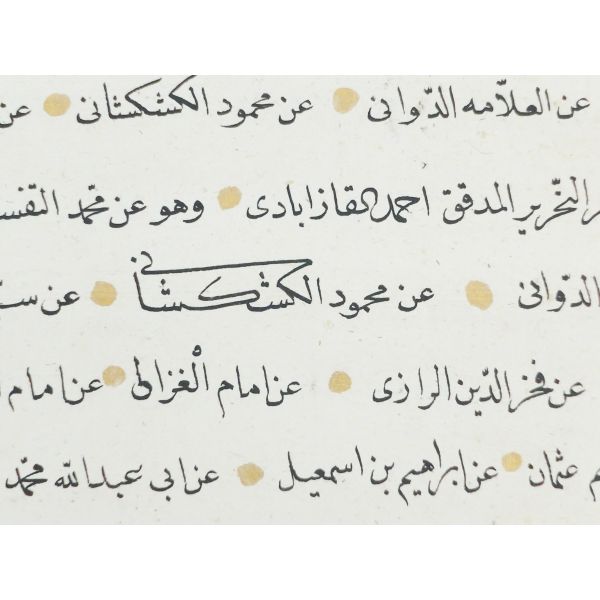 عن العلّامه الدّوانى عن محمود الكشكشانى عن
النحّرير المدقق احمد القازابادى وهو عن محمّد التفسـ
الدّوانى عن محمود الكشكشانى عن
عن فخر الدّين الرازى عن امام الْغزالى عن امام
عثمان عن ابراهيم بن اسمعيل عن ابي عبد الله محمّد